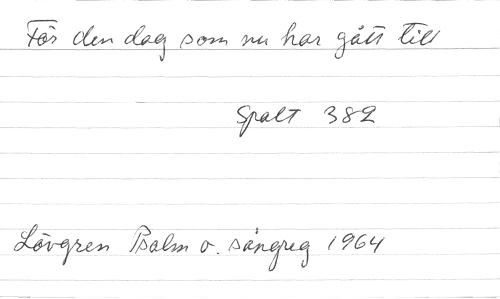 För den dag som nu har gått till
Spalt 382
Lövgren Psalm o. sångreg 1964